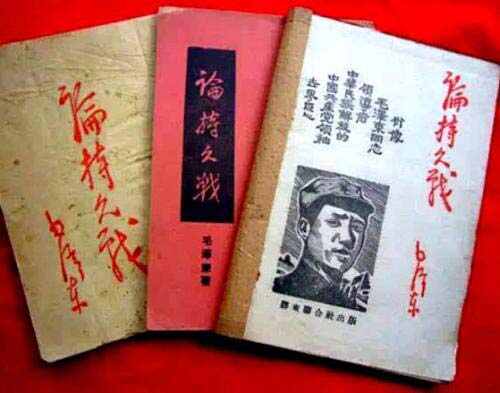 論持久戰
毛泽东
論持久戰
毛澤東著
論持久戰
毛泽东
像
毛澤東同志
領導着
中華民族解放的
中國共產党領袖
膠東聯合社出版